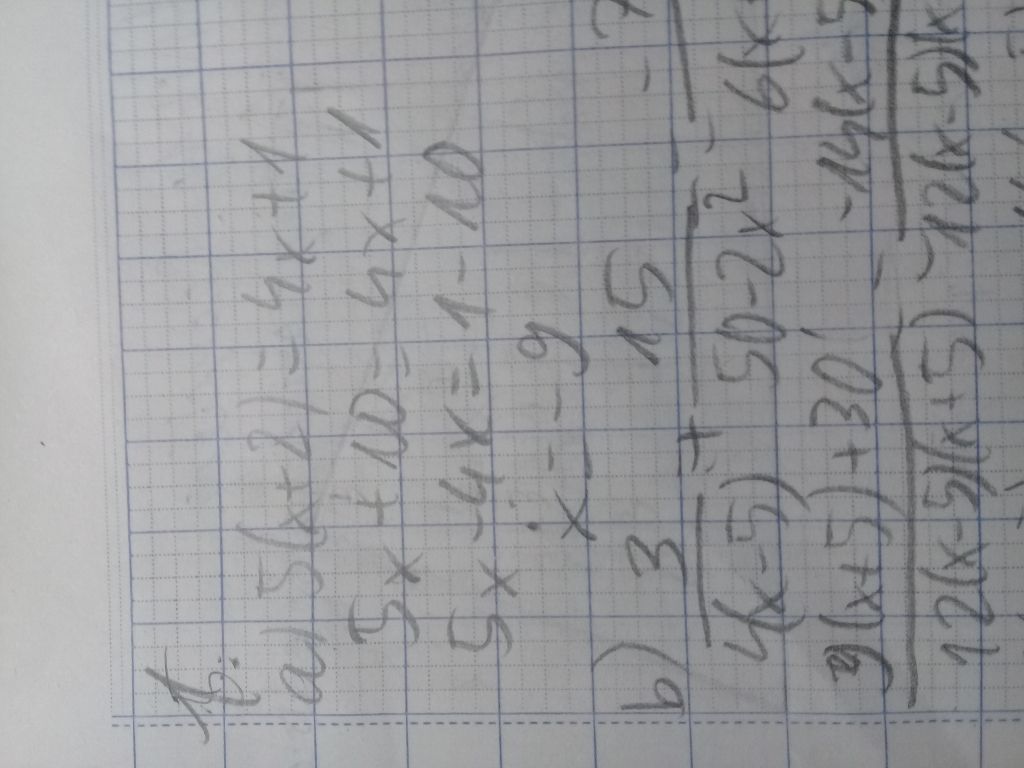 1.
a) 5(x+2) = 4x+1
5x+10 = 4x+1
5x-4x = 1-10
x = -9
b) 3 15 -7
4(x-5) + 50-2x² - 6(x
9(x+5)+30 -14(x-5
12(x-5)(x+5) - 12(x-5)(x